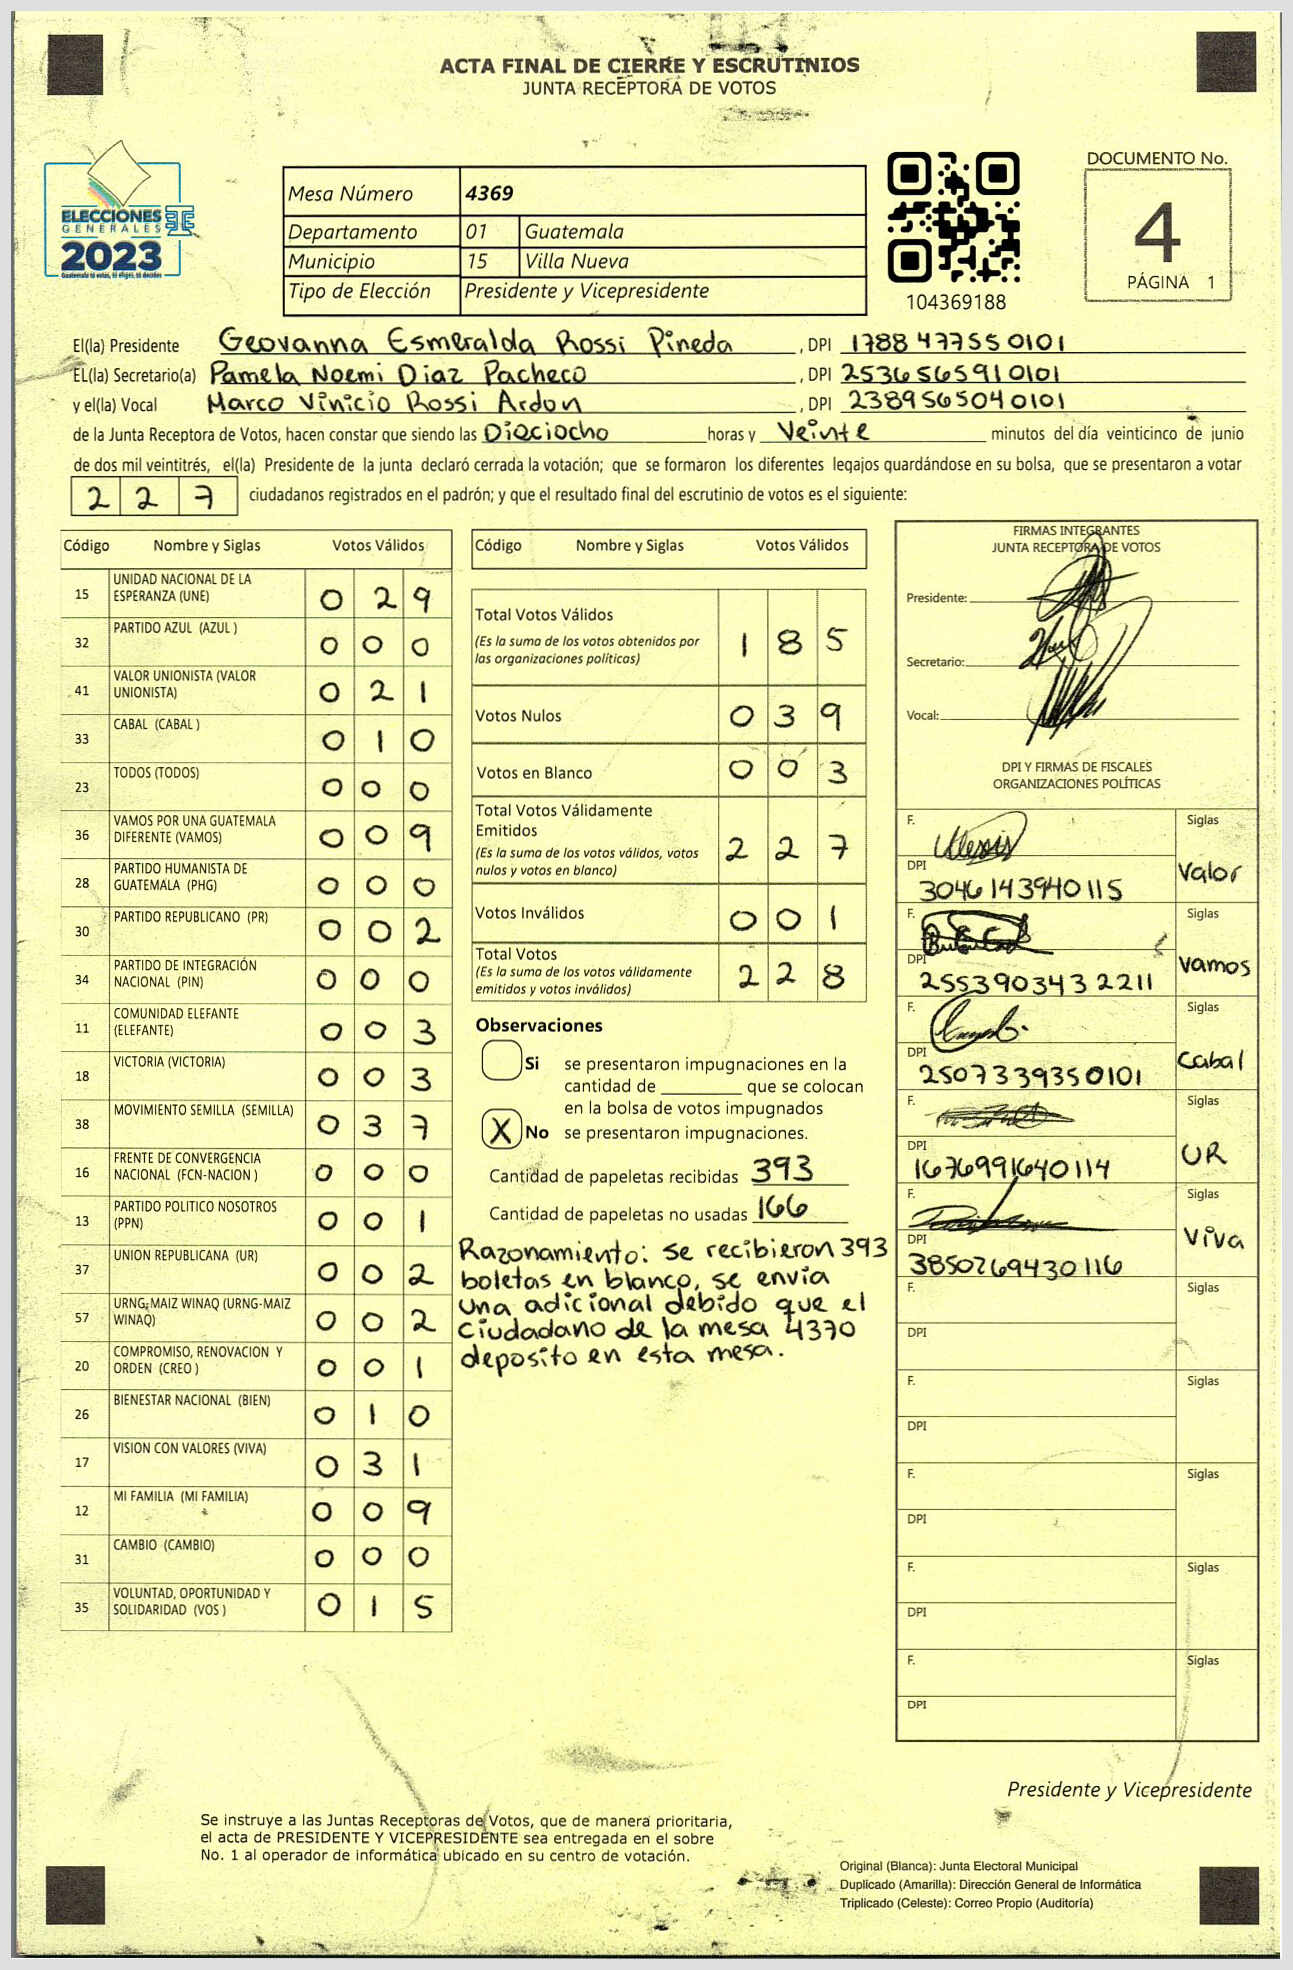 ACTA FINAL DE CIERRE Y ESCRUTINIOS
JUNTA RECEPTORA DE VOTOS
ELECCIONES
GENERALES
2023
Guatemala tú votas, tú eliges, tú decides
Mesa Número 4369
Departamento 01 Guatemala
Municipio 15 Villa Nueva
Tipo de Elección Presidente y Vicepresidente
104369188
DOCUMENTO No.
4
PÁGINA 1
El(la) Presidente Geovanna Esmeralda Rossi Pineda, DPI 1788 47755 0101
EL(la) Secretario(a) Pamela Noemi Diaz Pacheco, DPI 2536565910101
y el(la) Vocal Marco Vinicio Rossi Ardon, DPI 2389565040101
de la Junta Receptora de Votos, hacen constar que siendo las Dieciocho horas y Veinte minutos del día veinticinco de junio
de dos mil veintitrés, el(la) Presidente de la junta declaró cerrada la votación; que se formaron los diferentes legajos quardándose en su bolsa, que se presentaron a votar
2 2 7 ciudadanos registrados en el padrón; y que el resultado final del escrutinio de votos es el siguiente:
Código Nombre y Siglas Votos Válidos
15 UNIDAD NACIONAL DE LA
ESPERANZA (UNE) 0 2 9
32 PARTIDO AZUL (AZUL ) 0 0 0
41 VALOR UNIONISTA (VALOR
UNIONISTA) 0 2 1
33 CABAL (CABAL ) 0 1 0
23 TODOS (TODOS) 0 0 0
36 VAMOS POR UNA GUATEMALA
DIFERENTE (VAMOS) 0 0 9
28 PARTIDO HUMANISTA DE
GUATEMALA (PHG) 0 0 0
30 PARTIDO REPUBLICANO (PR) 0 0 2
34 PARTIDO DE INTEGRACIÓN
NACIONAL (PIN) 0 0 0
11 COMUNIDAD ELEFANTE
(ELEFANTE) 0 0 3
18 VICTORIA (VICTORIA) 0 0 3
38 MOVIMIENTO SEMILLA (SEMILLA) 0 3 7
16 FRENTE DE CONVERGENCIA
NACIONAL (FCN-NACION ) 0 0 0
13 PARTIDO POLITICO NOSOTROS
(PPN) 0 0 1
37 UNION REPUBLICANA (UR) 0 0 2
57 URNG-MAIZ WINAQ (URNG-MAIZ
WINAQ) 0 0 2
20 COMPROMISO, RENOVACION Y
ORDEN (CREO ) 0 0 1
26 BIENESTAR NACIONAL (BIEN) 0 1 0
17 VISION CON VALORES (VIVA) 0 3 1
12 MI FAMILIA (MI FAMILIA) 0 0 9
31 CAMBIO (CAMBIO) 0 0 0
35 VOLUNTAD, OPORTUNIDAD Y
SOLIDARIDAD (VOS ) 0 1 5
Código Nombre y Siglas Votos Válidos
Total Votos Válidos
(Es la suma de los votos obtenidos por
las organizaciones políticas) 1 8 5
Votos Nulos 0 3 9
Votos en Blanco 0 0 3
Total Votos Válidamente
Emitidos
(Es la suma de los votos válidos, votos
nulos y votos en blanco) 2 2 7
Votos Inválidos 0 0 1
Total Votos
(Es la suma de los votos válidamente
emitidos y votos inválidos) 2 2 8
Observaciones
Si se presentaron impugnaciones en la
cantidad de ________ que se colocan
en la bolsa de votos impugnados
X No se presentaron impugnaciones.
Cantidad de papeletas recibidas 393
Cantidad de papeletas no usadas 166
Razonamiento: se recibieron 393
boletas en blanco, se envia
una adicional debido que el
ciudadano de la mesa 4370
deposito en esta mesa.
FIRMAS INTEGRANTES
JUNTA RECEPTORA DE VOTOS
Presidente:
Secretario:
Vocal:
DPI Y FIRMAS DE FISCALES
ORGANIZACIONES POLÍTICAS
F. Alexis Siglas
DPI 3046143940115 Valor
F. Siglas
DPI 2553903432211 Vamos
F. Siglas
DPI 2507339350101 Cabal
F. Siglas
DPI 1676991640114 UR
F. Siglas
DPI 3850269430116 Viva
F. Siglas
DPI
F. Siglas
DPI
F. Siglas
DPI
F. Siglas
DPI
F. Siglas
DPI
Presidente y Vicepresidente
Se instruye a las Juntas Receptoras de Votos, que de manera prioritaria,
el acta de PRESIDENTE Y VICEPRESIDENTE sea entregada en el sobre
No. 1 al operador de informática ubicado en su centro de votación.
Original (Blanca): Junta Electoral Municipal
Duplicado (Amarilla): Dirección General de Informática
Triplicado (Celeste): Correo Propio (Auditoría)